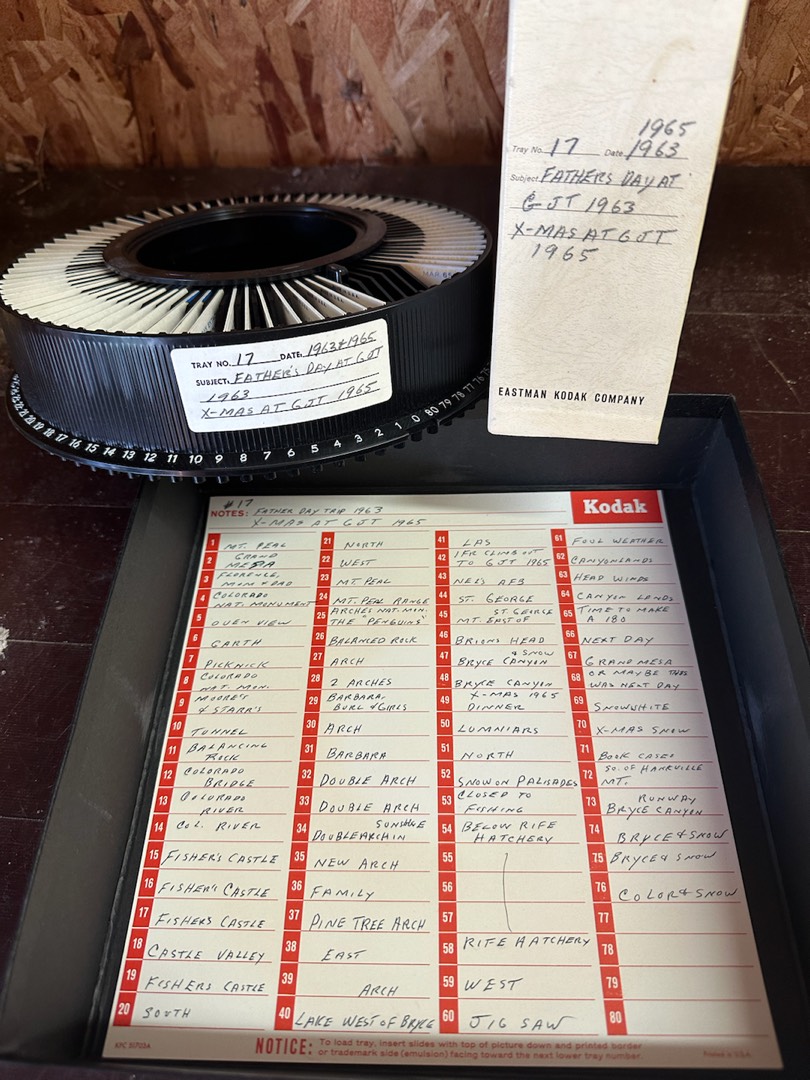 1965
Tray No. 17 Date 1963
Subject FATHERS DAY AT
GJT 1963
X-MAS AT GJT
1965
EASTMAN KODAK COMPANY
MAR 65
TRAY NO. 17 DATE. 1963 & 1965
SUBJECT. FATHER'S DAY AT GJT
1963
X-MAS AT GJT 1965
19 18 17 16 15 14 13 12 11 10 9 8 7 6 5 4 3 2 1 0 80 79 78 77 76 75
#17
NOTES: FATHER DAY TRIP 1963
X-MAS AT GJT 1965
Kodak
1 MT. PEAL
2 GRAND MESA
3 FLORENCE, MOM & DAD
4 COLORADO NAT. MONUMENT
5 OVEN VIEW
6 GARTH
7 PICKNICK
8 COLORADO NAT. MON.
9 MOORE'S & STARR'S
10 TUNNEL
11 BALANCING ROCK
12 COLORADO BRIDGE
13 COLORADO RIVER
14 COL. RIVER
15 FISHER'S CASTLE
16 FISHER'S CASTLE
17 FISHERS CASTLE
18 CASTLE VALLEY
19 FISHERS CASTLE
20 SOUTH
21 NORTH
22 WEST
23 MT. PEAL
24 MT. PEAL RANGE
25 ARCHES NAT. MON. THE "PENGUINS"
26 BALANCED ROCK
27 ARCH
28 2 ARCHES
29 BARBARA, BURL & GIRLS
30 ARCH
31 BARBARA
32 DOUBLE ARCH
33 DOUBLE ARCH
34 SUNSHINE DOUBLE ARCH IN
35 NEW ARCH
36 FAMILY
37 PINE TREE ARCH
38 EAST
39 ARCH
40 LAKE WEST OF BRYCE
41 LAS
42 IFR CLIMB OUT TO GJT 1965
43 NEL'S AFB
44 ST. GEORGE
45 ST. GEORGE MT. EAST OF
46 BRIONS HEAD
47 & SNOW BRYCE CANYON
48 BRYCE CANYON
49 X-MAS 1965 DINNER
50 LUMNIARS
51 NORTH
52 SNOW ON PALISADES
53 CLOSED TO FISHING
54 BELOW RIFE HATCHERY
55
56
57
58 RIFE HATCHERY
59 WEST
60 JIG SAW
61 FOUL WEATHER
62 CANYONLANDS
63 HEAD WINDS
64 CANYON LANDS
65 TIME TO MAKE A 180
66 NEXT DAY
67 GRAND MESA
68 OR MAYBE THIS WAS NEXT DAY
69 SNOWHITE
70 X-MAS SNOW
71 BOOK CASES
72 SO. OF HANKVILLE MT.
73 RUNWAY BRYCE CANYON
74 BRYCE & SNOW
75 BRYCE & SNOW
76 COLOR & SNOW
77
78
79
80
NOTICE: To load tray, insert slides with top of picture down and printed border
or trademark side (emulsion) facing toward the next lower tray number.
Printed in U.S.A.